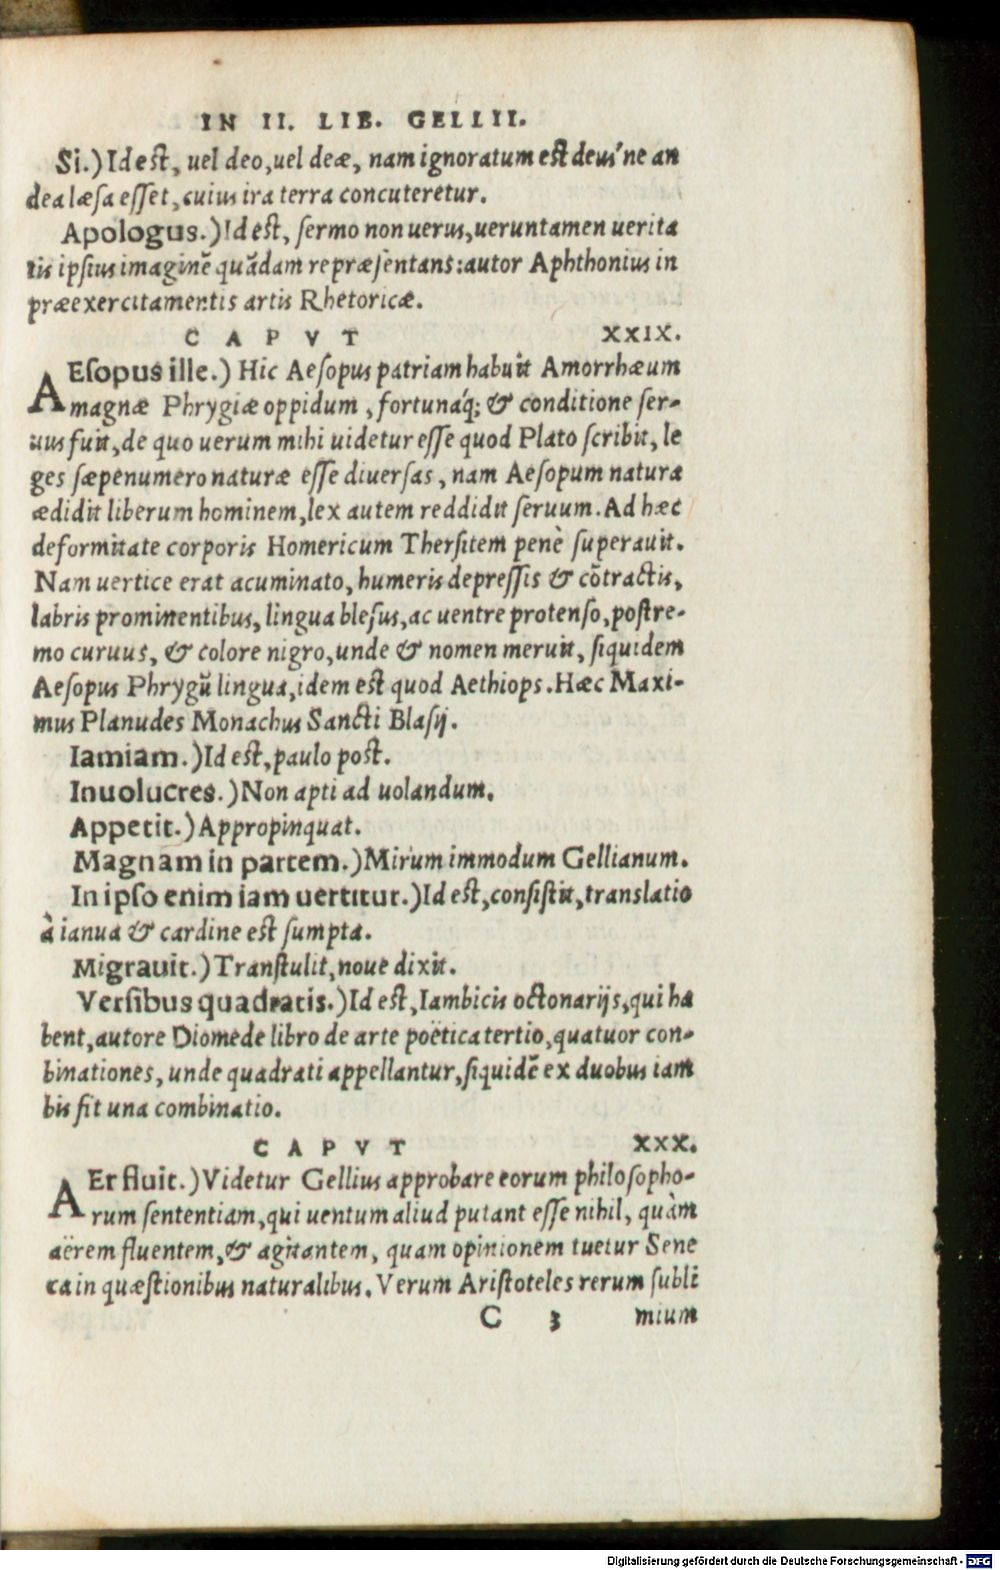 IN II. LIB. GELLII.
Si.) Id est, uel deo, uel deæ, nam ignoratum est deus'ne an
dea læsa esset, cuius ira terra concuteretur.
Apologus.) Id est, sermo non uerus, ueruntamen uerita
tis ipsius imaginē quādam repræsentans: autor Aphthonius in
præexercitamentis artis Rhetoricæ.
CAPVT XXIX.
AEsopus ille.) Hic Aesopus patriam habuit Amorrhæum
magnæ Phrygiæ oppidum, fortunáq; & conditione ser-
uus fuit, de quo uerum mihi uidetur esse quod Plato scribit, le
ges sæpenumero naturæ esse diuersas, nam Aesopum natura
ædidit liberum hominem, lex autem reddidit seruum. Ad hæc
deformitate corporis Homericum Thersitem penè superauit.
Nam uertice erat acuminato, humeris depressis & cōtractis,
labris prominentibus, lingua blesus, ac uentre protenso, postre-
mo curuus, & colore nigro, unde & nomen meruit, siquidem
Aesopus Phrygū lingua, idem est quod Aethiops. Hæc Maxi-
mus Planudes Monachus Sancti Blasij.
Iamiam.) Id est, paulo post.
Inuolucres.) Non apti ad uolandum.
Appetit.) Appropinquat.
Magnam in partem.) Mirum immodum Gellianum.
In ipso enim iam uertitur.) Id est, consistit, translatio
à ianua & cardine est sumpta.
Migrauit.) Transtulit, noue dixit.
Versibus quadratis.) Id est, Iambicis octonarijs, qui ha
bent, autore Diomede libro de arte poëtica tertio, quatuor con-
binationes, unde quadrati appellantur, siquidē ex duobus iam
bis fit una combinatio.
CAPVT XXX.
AEr fluit.) Videtur Gellius approbare eorum philosopho-
rum sententiam, qui uentum aliud putant esse nihil, quàm
aërem fluentem, & agitantem, quam opinionem tuetur Sene
ca in quæstionibus naturalibus. Verum Aristoteles rerum subli
C 3 mium
Digitalisierung gefördert durch die Deutsche Forschungsgemeinschaft - DFG